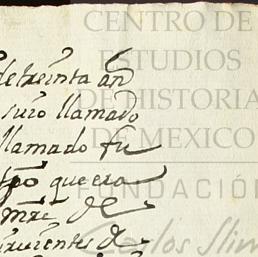 CENTRO DE
ESTUDIOS
DE HISTORIA
DE MEXICO
FUNDACIÓN
Carlos Slim
de treinta an
suio llamado
llamado fu
tpo que era
mre de
sirvientes de